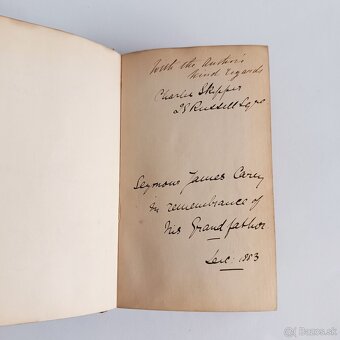 With the Author's
kind regards
Charles Skipper
28 Russell Sqre
Seymour James
in remembrance of
his Grandfather
1883
© Bazos.sk